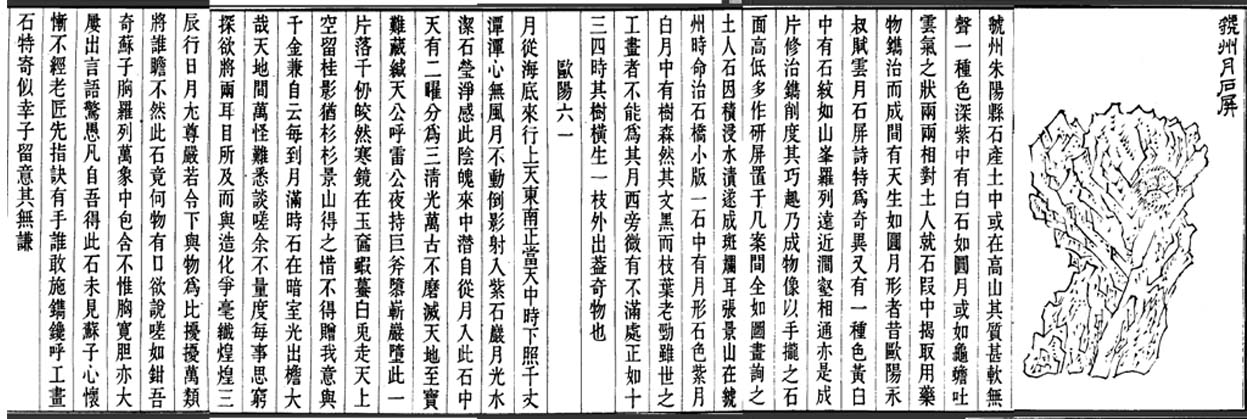 虢州月石屏
虢州朱陽縣石產土中或在高山其質甚軟無
聲一種色深紫中有白石如圓月或如龜蟾吐
雲氣之狀兩兩相對土人就石段中揭取用藥
物鐫治而成間有天生如圓月形者昔歐陽永
叔賦雲月石屏詩特為奇異又有一種色黃白
中有石紋如山峯羅列遠近澗壑相通亦是成
片修治鐫削度其巧趣乃成物像以手攏之石
面高低多作研屏置于几案間全如圖畫詢之
土人石因積浸水漬遂成斑斕耳張景山在虢
州時命治石橋小版一石中有月形石色紫月
白月中有樹森然其文黑而枝葉老勁雖世之
工畫者不能為其月西旁微有不滿處正如十
三四時其樹橫生一枝外出葢奇物也
歐陽六一
月從海底來行上天東南正當天中時下照千丈
潭潭心無風月不動倒影射入紫石巖月光水
潔石瑩淨感此陰魄來中潛自從月入此石中
天有二曜分為三清光萬古不磨滅天地至寶
難藏緘天公呼雷公夜持巨斧隳嶄巖墮此一
片落千仞皎然寒鏡在玉奩蝦蟇白兔走天上
空留桂影猶杉杉景山得之惜不得贈我意與
千金兼自云每到月滿時石在暗室光出檐大
哉天地間萬怪難悉談嗟余不量度每事思窮
探欲將兩耳目所及而與造化爭毫纖煌煌三
辰行日月尤尊嚴若令下與物為比擾擾萬類
將誰瞻不然此石竟何物有口欲說嗟如鉗吾
奇蘇子胸羅列萬象中包含不惟胸寬胆亦大
屢出言語驚愚凡自吾得此石未見蘇子心懷
慚不經老匠先指訣有手誰敢施鐫鑱呼工畫
石特寄似幸子留意其無謙